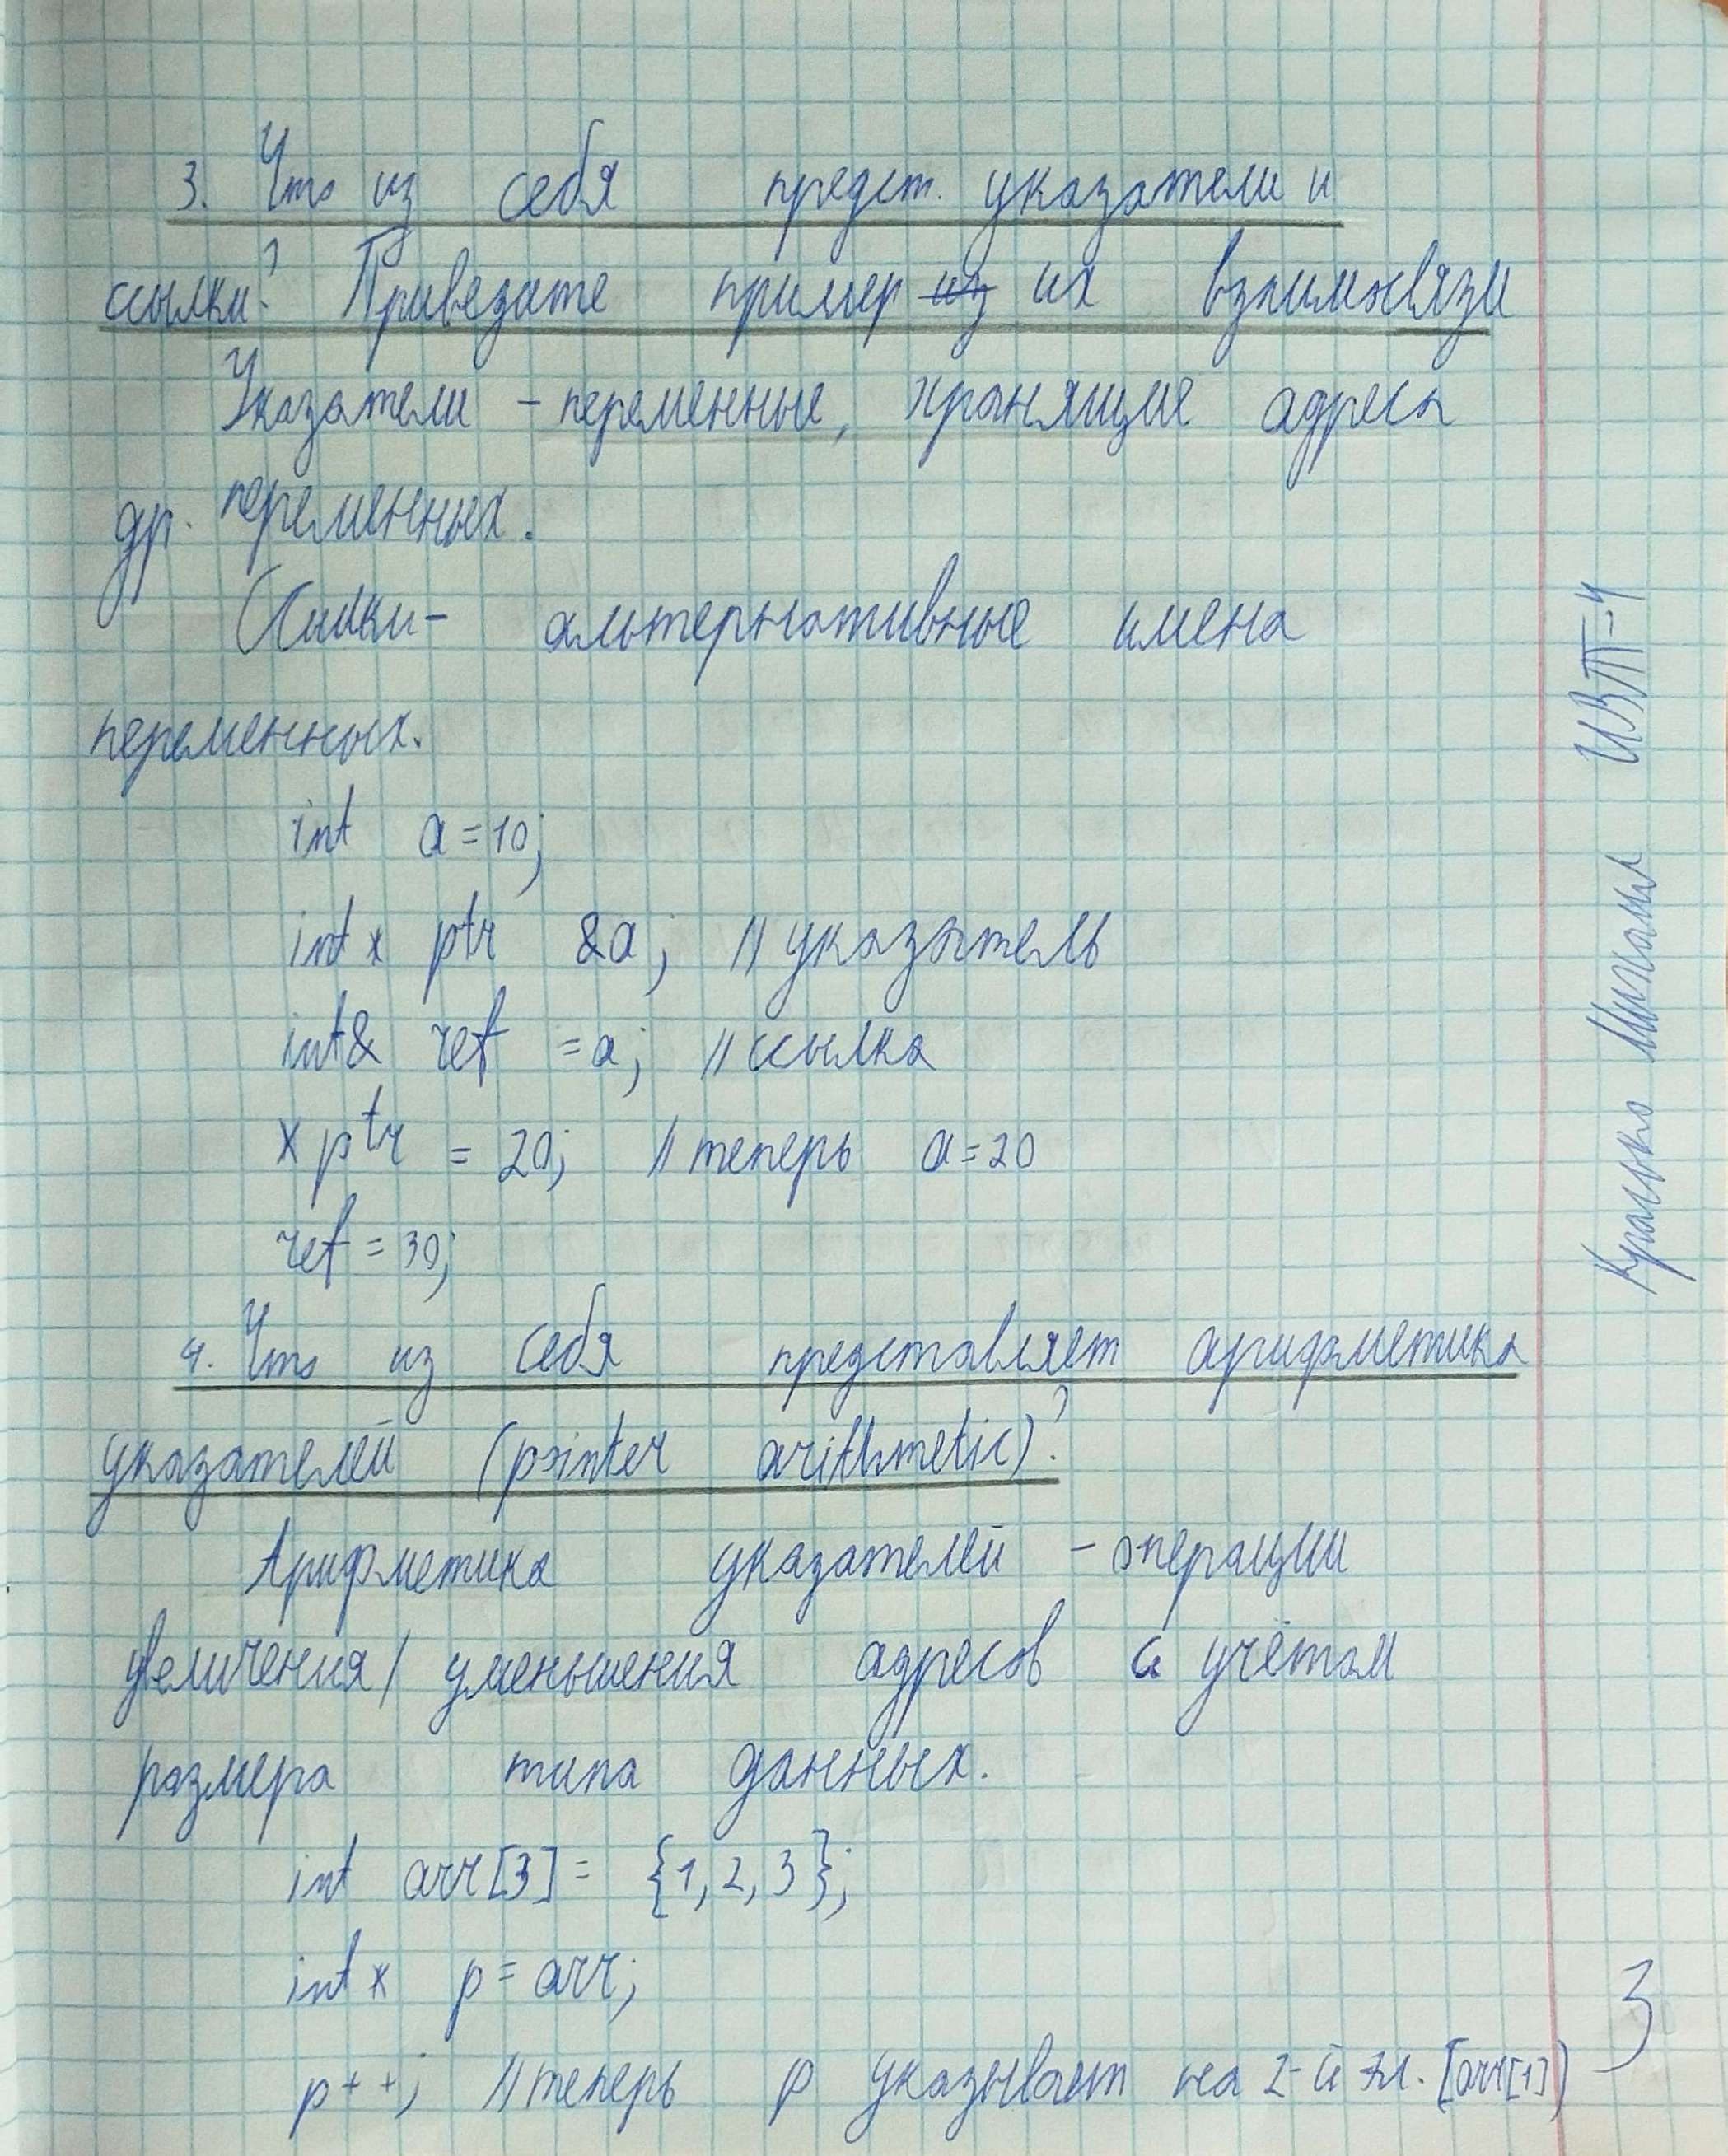 3. Что из себя предст. указатели и
ссылки? Приведите пример из их взаимосвязи
Указатели - переменные, хранящие адреса
др. переменных.
Ссылки - альтернативные имена
переменных.
int a = 10;
int* ptr &a; // указатель
int& ref = a; // ссылка
*ptr = 20; // теперь a = 20
ref = 30;
4. Что из себя представляет арифметика
указателей (pointer arithmetic)?
Арифметика указателей - операции
увеличения/уменьшения адресов с учётом
размера типа данных.
int arr[3] = {1, 2, 3};
int* p = arr;
p++; // теперь p указывает на 2-й эл. [arr[1])
Михаил ИВТ-4
3